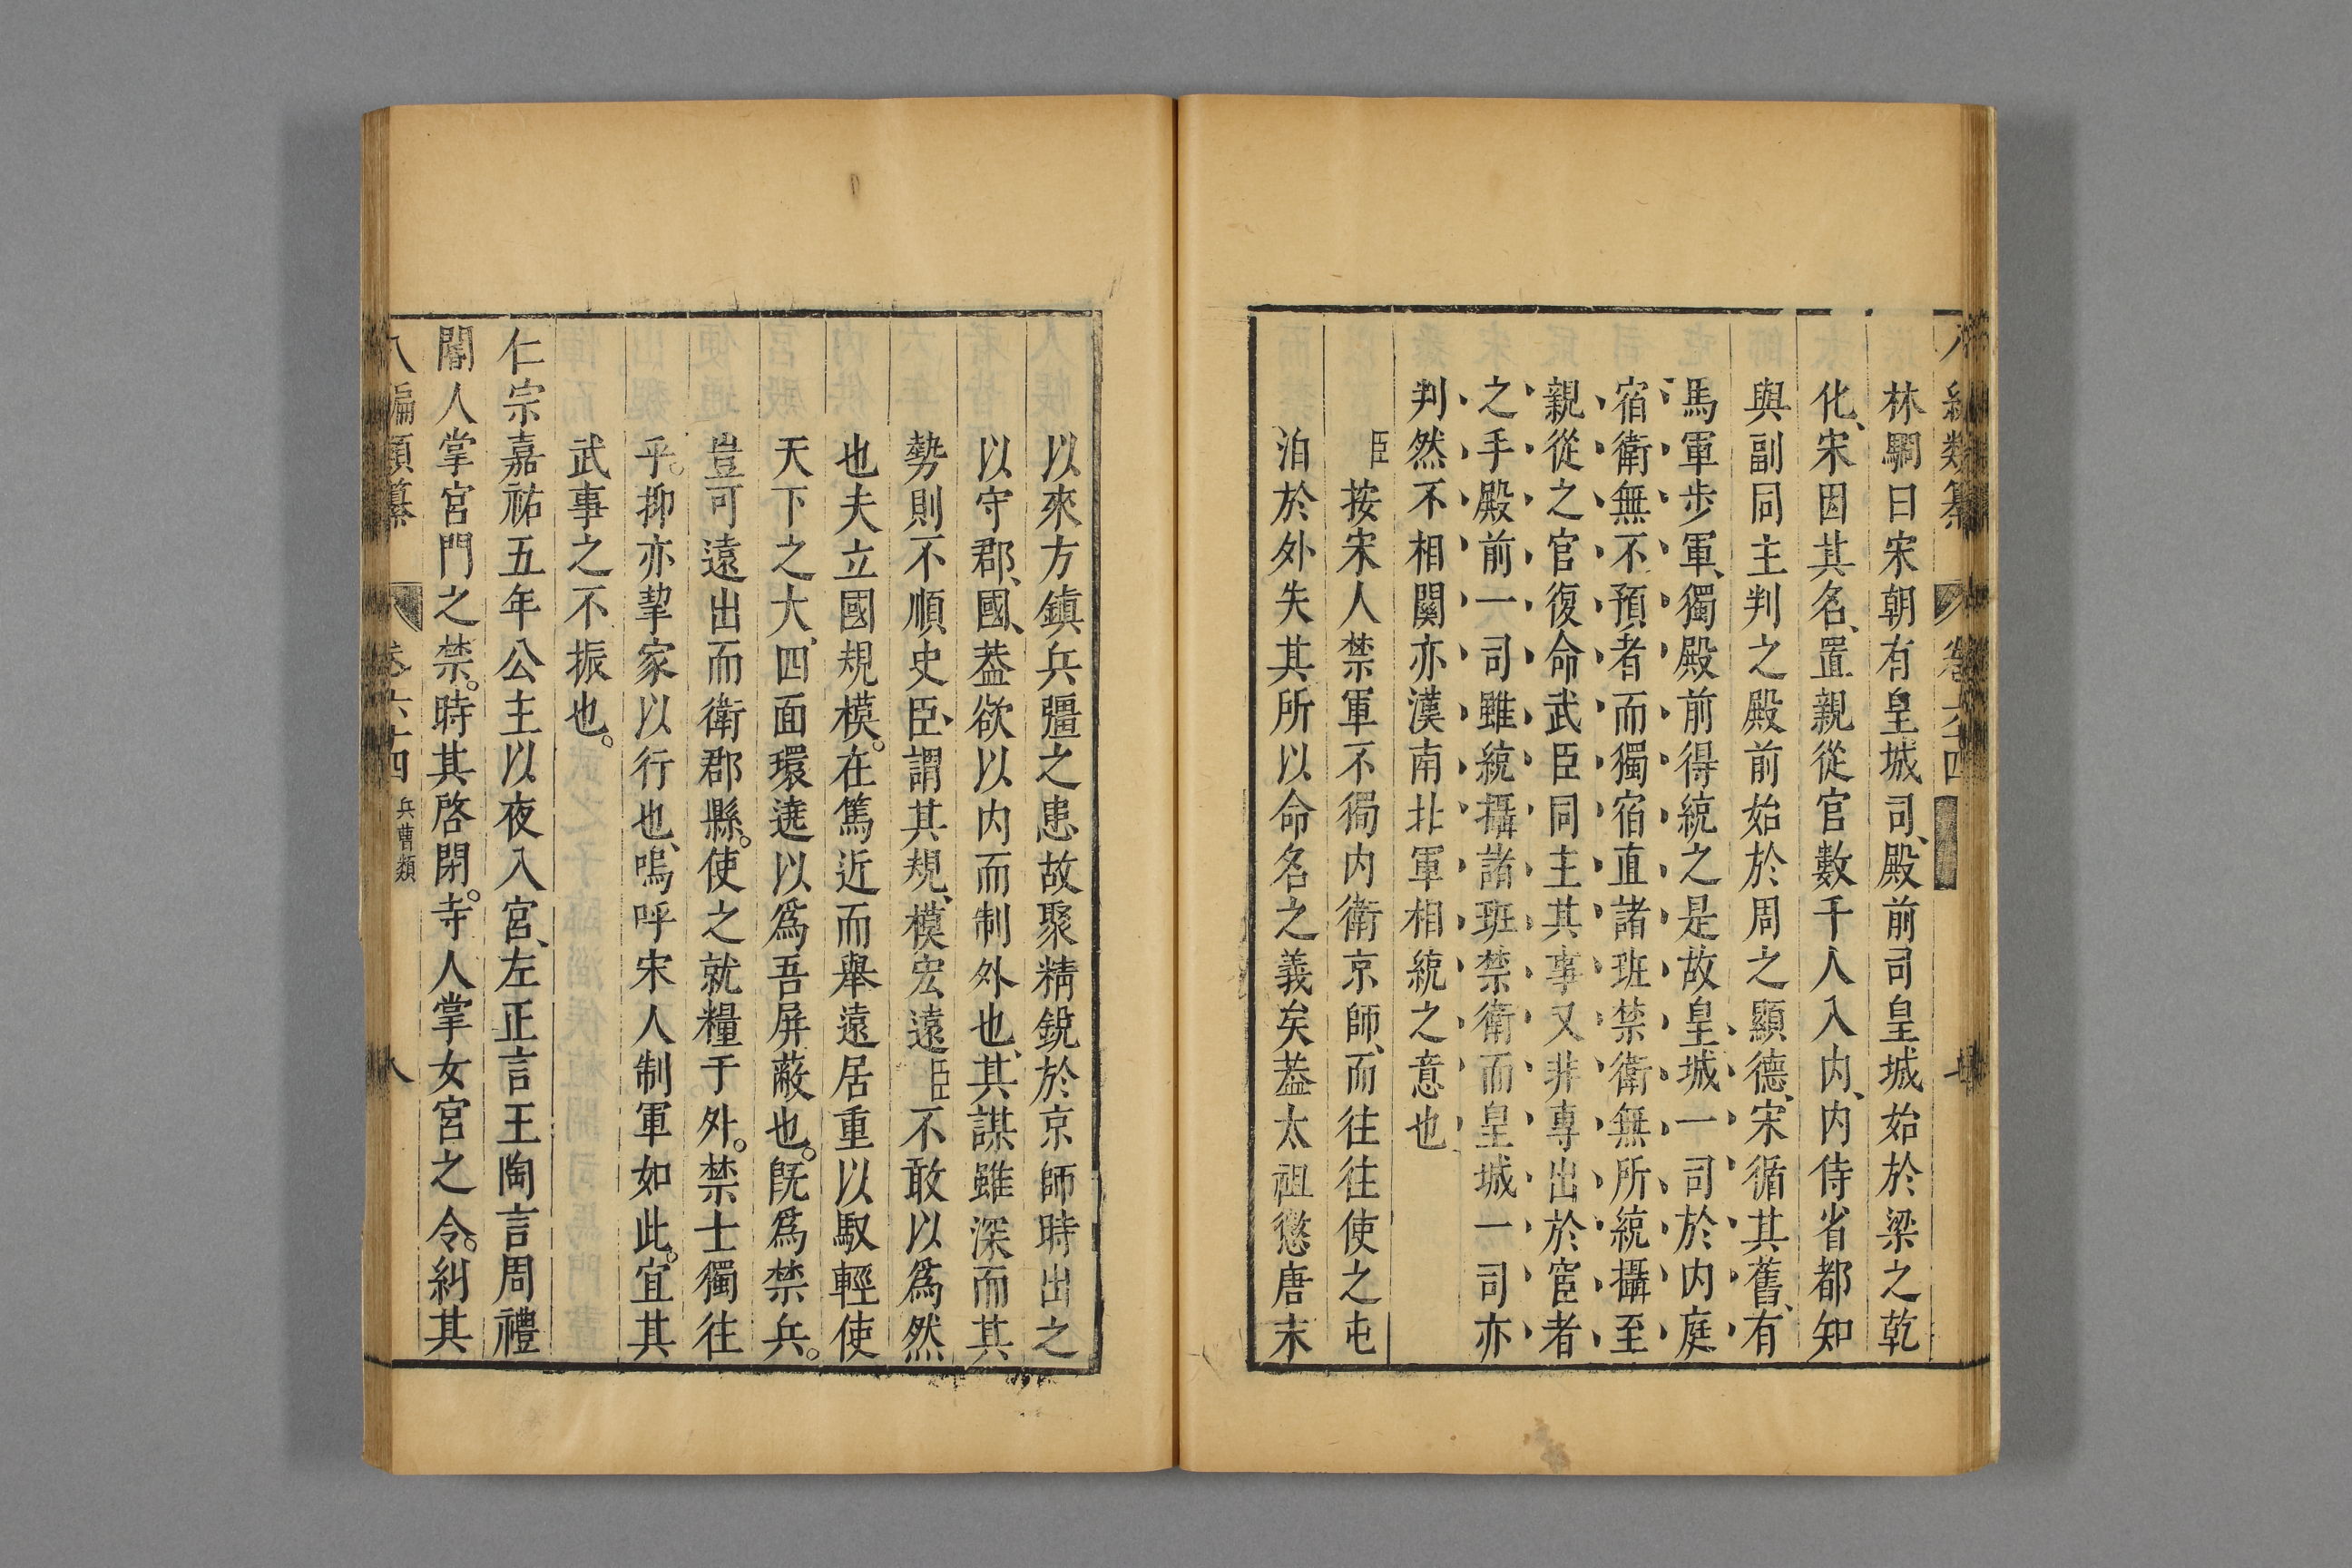 林駉曰宋朝有皇城司、殿前司皇城始於梁之乾
化、宋因其名、置親從官數千人入内、内侍省都知
與副同主判之殿前始於周之顯德、宋循其舊、有
馬軍步軍、獨殿前得統之是故皇城一司於内庭
宿衛無不預者而獨宿直諸班禁衛無所統攝至
親從之官復命武臣同主其事又非專出於宦者
之手殿前一司雖統攝諸班禁衛而皇城一司亦
判然不相關亦漢南北軍相統之意也
臣按宋人禁軍不獨内衛京師、而往往使之屯
泊於外失其所以命名之義矣葢太祖懲唐末
以來方鎮兵彊之患故聚精銳於京師時出之
以守郡、國、葢欲以内而制外也、其謀雖深而其
勢則不順史臣、謂其規、模宏遠臣不敢以爲然
也夫立國規模。在篤近而舉遠居重以馭輕使
天下之大、四面環遶以爲吾屏蔽也。旣爲禁兵。
豈可遠出而衛郡縣。使之就糧于外。禁士獨往
乎。抑亦挈家以行也、嗚呼宋人制軍如此。宜其
武事之不振也。
仁宗嘉祐五年公主以夜入宮、左正言王陶言周禮
閽人掌宮門之禁。時其啓閉。寺人掌女宮之令。糾其
八編類纂 卷六十四 兵曹類 八